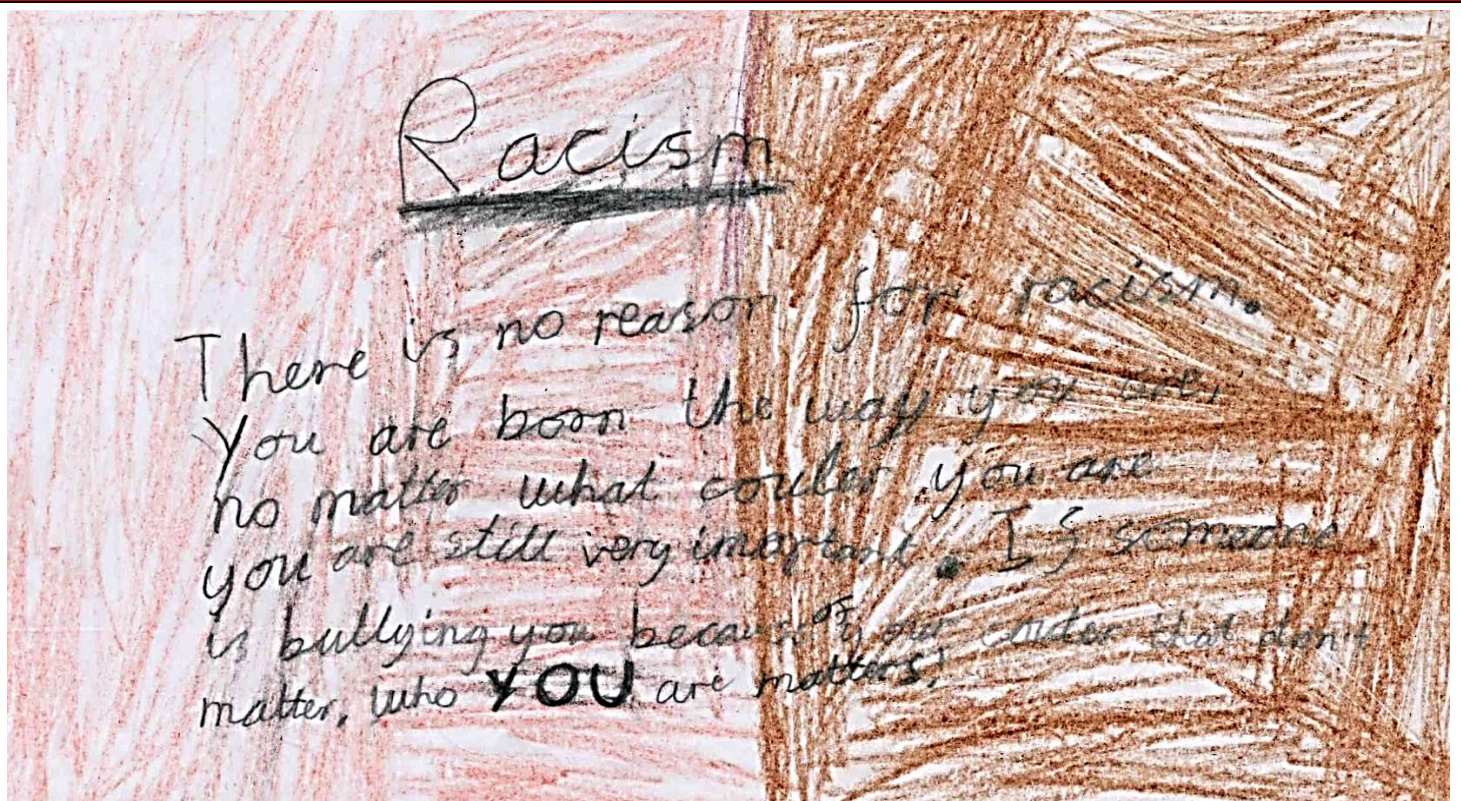 Racism
There is no reason for racism.
You are born the way you are,
no matter what couler you are
you are still very imortant. If someone
is bullying you because of your couler that don't
matter, who YOU are matters!